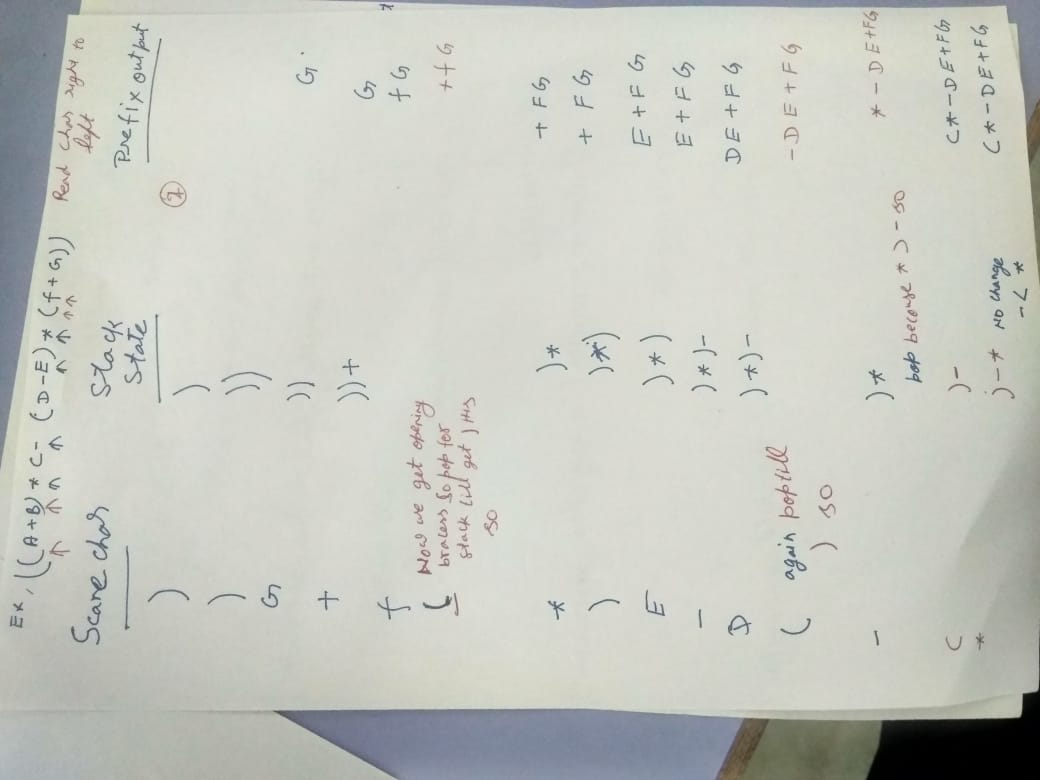 Ex, ((A+B)*C-(D-E)*(f+G)) Read char right to left
Scane char Stack State Prefix output
) )
) ))
G )) G
+ ))+ G
f f G
( Now we get opening + f G
bracess so pop for
stack till get ) this
so
* )* + F G
) )*) + F G
E )*) E + F G
- )*)- E + F G
D )*)- D E + F G
( again pop till - D E + F G
) so
- )* * - D E + F G
pop because * > - so
C )- C * - D E + F G
* )-* No change C * - D E + F G
- < *